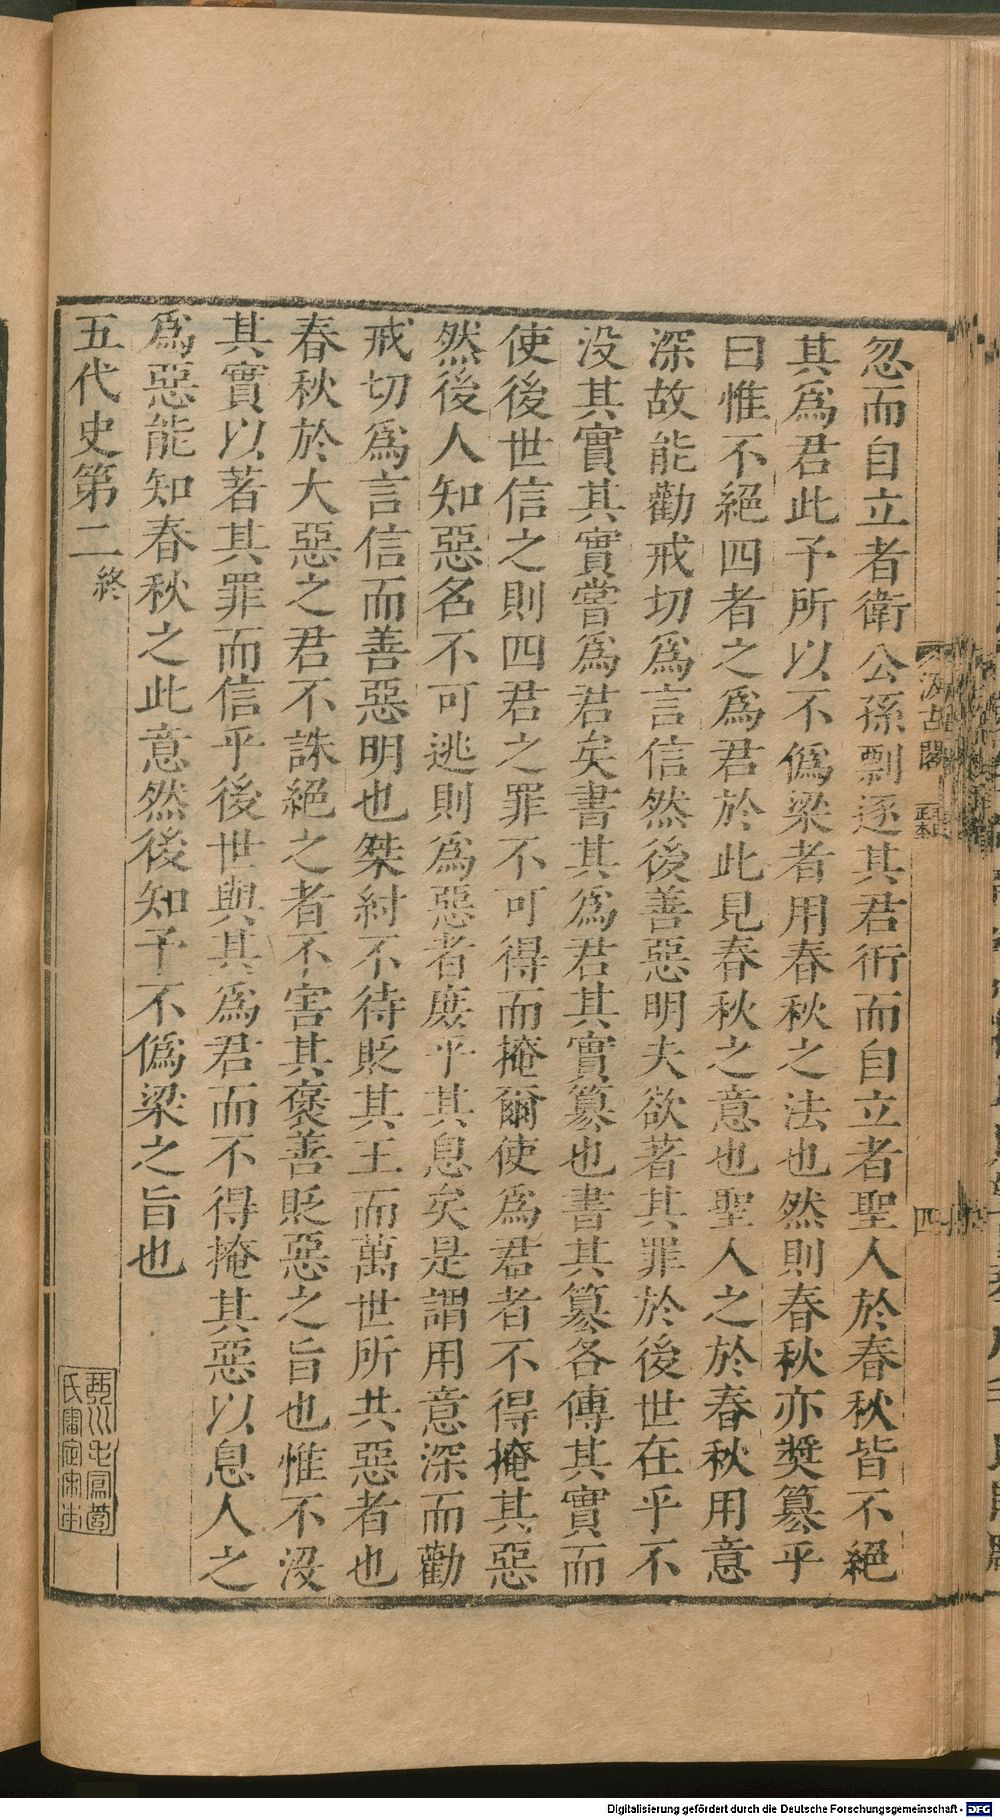 忽而自立者衛公孫剽逐其君衎而自立者聖人於春秋皆不絕
其爲君此予所以不僞梁者用春秋之法也然則春秋亦奬篡乎
曰惟不絕四者之爲君於此見春秋之意也聖人之於春秋用意
深故能勸戒切爲言信然後善惡明夫欲著其罪於後世在乎不
没其實其實嘗爲君矣書其爲君其實篡也書其篡各傳其實而
使後世信之則四君之罪不可得而掩爾使爲君者不得掩其惡
然後人知惡名不可逃則爲惡者庶乎其息矣是謂用意深而勸
戒切爲言信而善惡明也桀紂不待貶其王而萬世所共惡者也
春秋於大惡之君不誅絕之者不害其褒善貶惡之旨也惟不沒
其實以著其罪而信乎後世與其爲君而不得掩其惡以息人之
爲惡能知春秋之此意然後知予不僞梁之旨也
五代史第二終
汲古閣
毛氏
正本
四
Digitalisierung gefördert durch die Deutsche Forschungsgemeinschaft - DFG